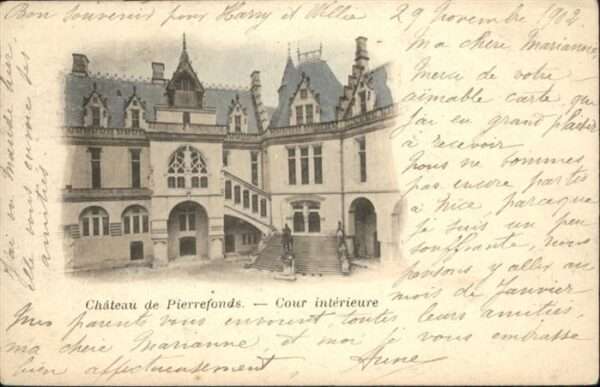 Bon souvenir pour Harry et Willie
29 Novembre 1902.
Ma chère Marianne,
Merci de votre
aimable carte que
j'ai eu grand plaisir
à recevoir.
Nous ne sommes
pas encore partis
à Nice parceque
je suis un peu
souffrante, nous
pensons y aller au
mois de Janvier
Mes parents vous envoient toutes leurs amitiés,
ma chère Marianne et moi je vous embrasse
bien affectueusement,
elle vous envoie ses
amitiés
Château de Pierrefonds. — Cour intérieure